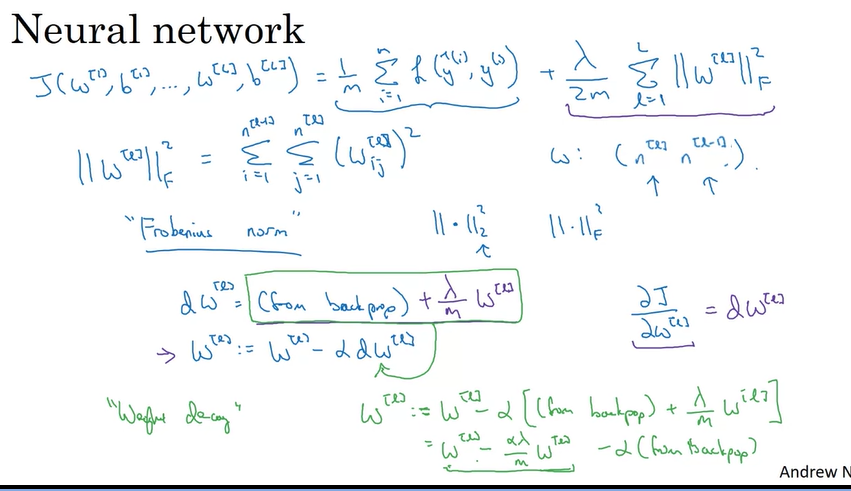 Neural network
J(w^[1], b^[1], ..., w^[L], b^[L]) = 1/m ∑_{i=1}^{m} ℒ(ŷ^(i), y^(i)) + λ/2m ∑_{l=1}^{L} ||w^[l]||_F^2
||w^[l]||_F^2 = ∑_{i=1}^{n^[l-1]} ∑_{j=1}^{n^[l]} (w_ij^[l])^2 w: (n^[l] n^[l-1]).
"Frobenius norm" ||·||_2^2 ||·||_F^2
dw^[l] = (from backprop) + λ/m w^[l] ∂J/∂w^[l] = dw^[l]
→ w^[l] := w^[l] - α dw^[l]
"Weight decay" w^[l] := w^[l] - α [(from backprop) + λ/m w^[l]]
= w^[l] - αλ/m w^[l] - α (from backprop)
Andrew N